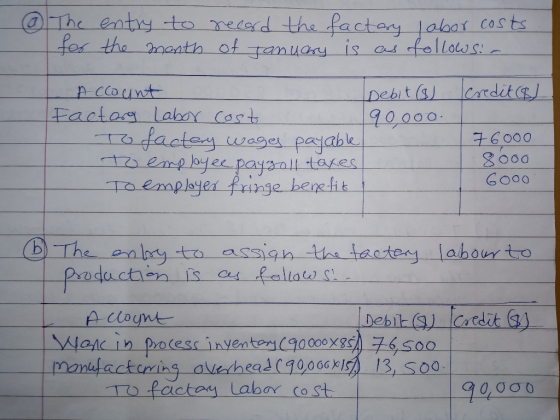 (a) The entry to record the factory labor costs
for the month of January is as follows:-
Account Debit($) Credit($)
Factory labor cost 90,000.
To factory wages payable 76000
To employee payroll taxes 8000
To employer fringe benefit 6000
(b) The entry to assign the factory labour to
production is as follows:-
Account Debit($) Credit($)
Work in process inventory(90000x85%) 76,500
manufacturing overhead(90,000x15%) 13,500.
To factory labor cost 90,000